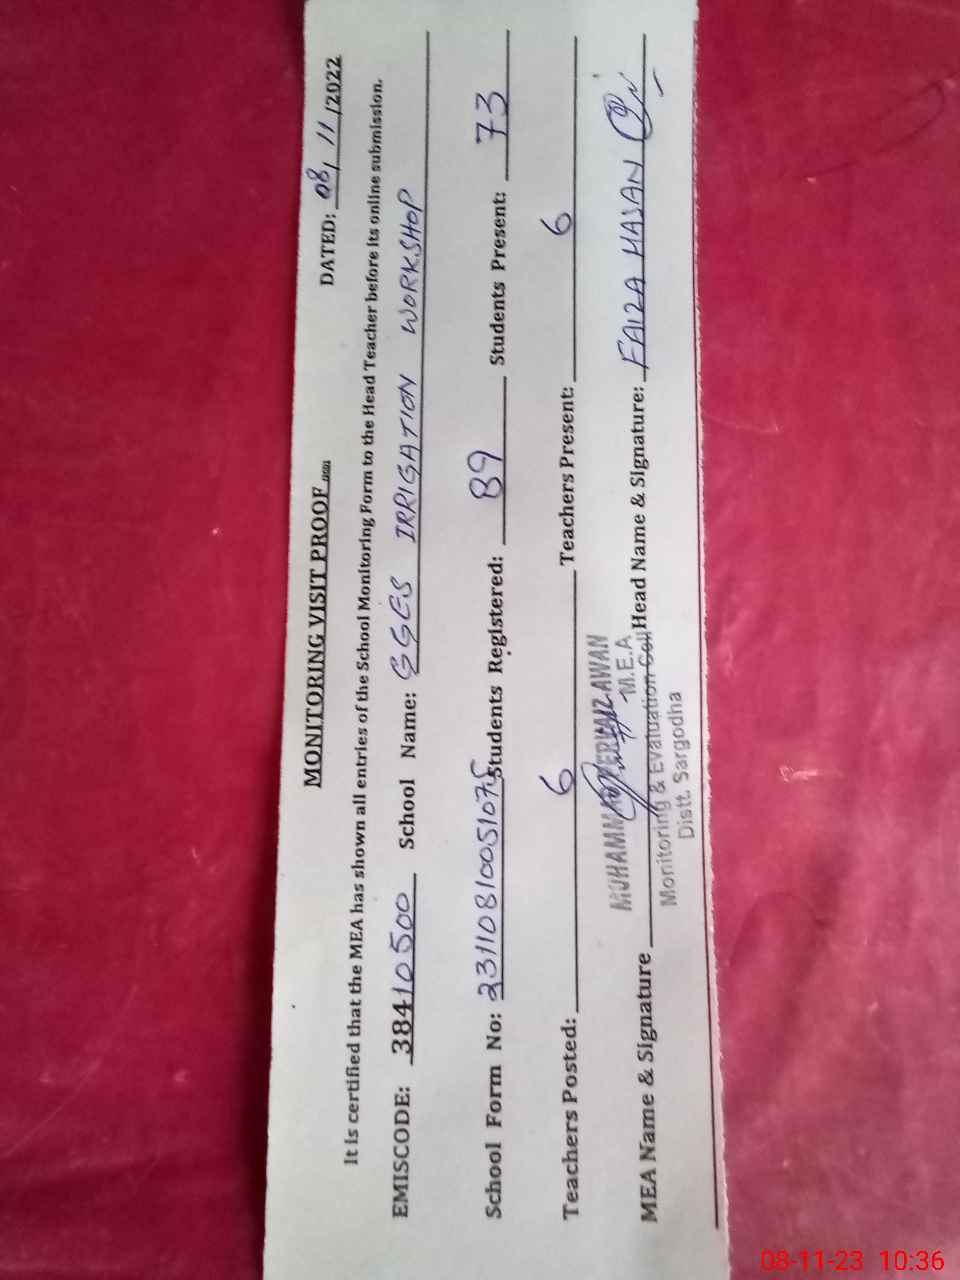 MONITORING VISIT PROOF
DATED: 08/ 11 /2022
It is certified that the MEA has shown all entries of the School Monitoring Form to the Head Teacher before its online submission.
EMISCODE: 38410500 School Name: GGES IRRIGATION WORKSHOP
School Form No: 23110810051075 Students Registered: 89 Students Present: 73
Teachers Posted: 6 Teachers Present: 6
MUHAMMAD PERVAIZ AWAN
M.E.A
MEA Name & Signature Head Name & Signature: FAIZA HASAN
Monitoring & Evaluation Cell
Distt. Sargodha
08-11-23 10:36